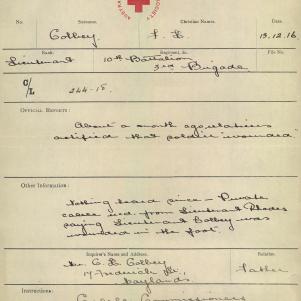 SOCIETY
No.
Surname.
Christian Names.
Date.
Colbey
F. L.
13.12.16
Rank.
Regiment, &c.
File No.
Lieutenant
10th Battalion
3rd Brigade
C/L
244-15
OFFICIAL REPORTS:
About a month ago relatives
notified that soldier wounded.
Other Information:
Nothing heard since - Private
cable recd. from Lieutenant Rhodes
saying Lieutenant Colbey was
wounded in the foot.
Inquirer's Name and Address.
Relation.
Mr. C. L. Colbey
Father
17 Frederick St,
Maylands
Instructions:
Commissioners